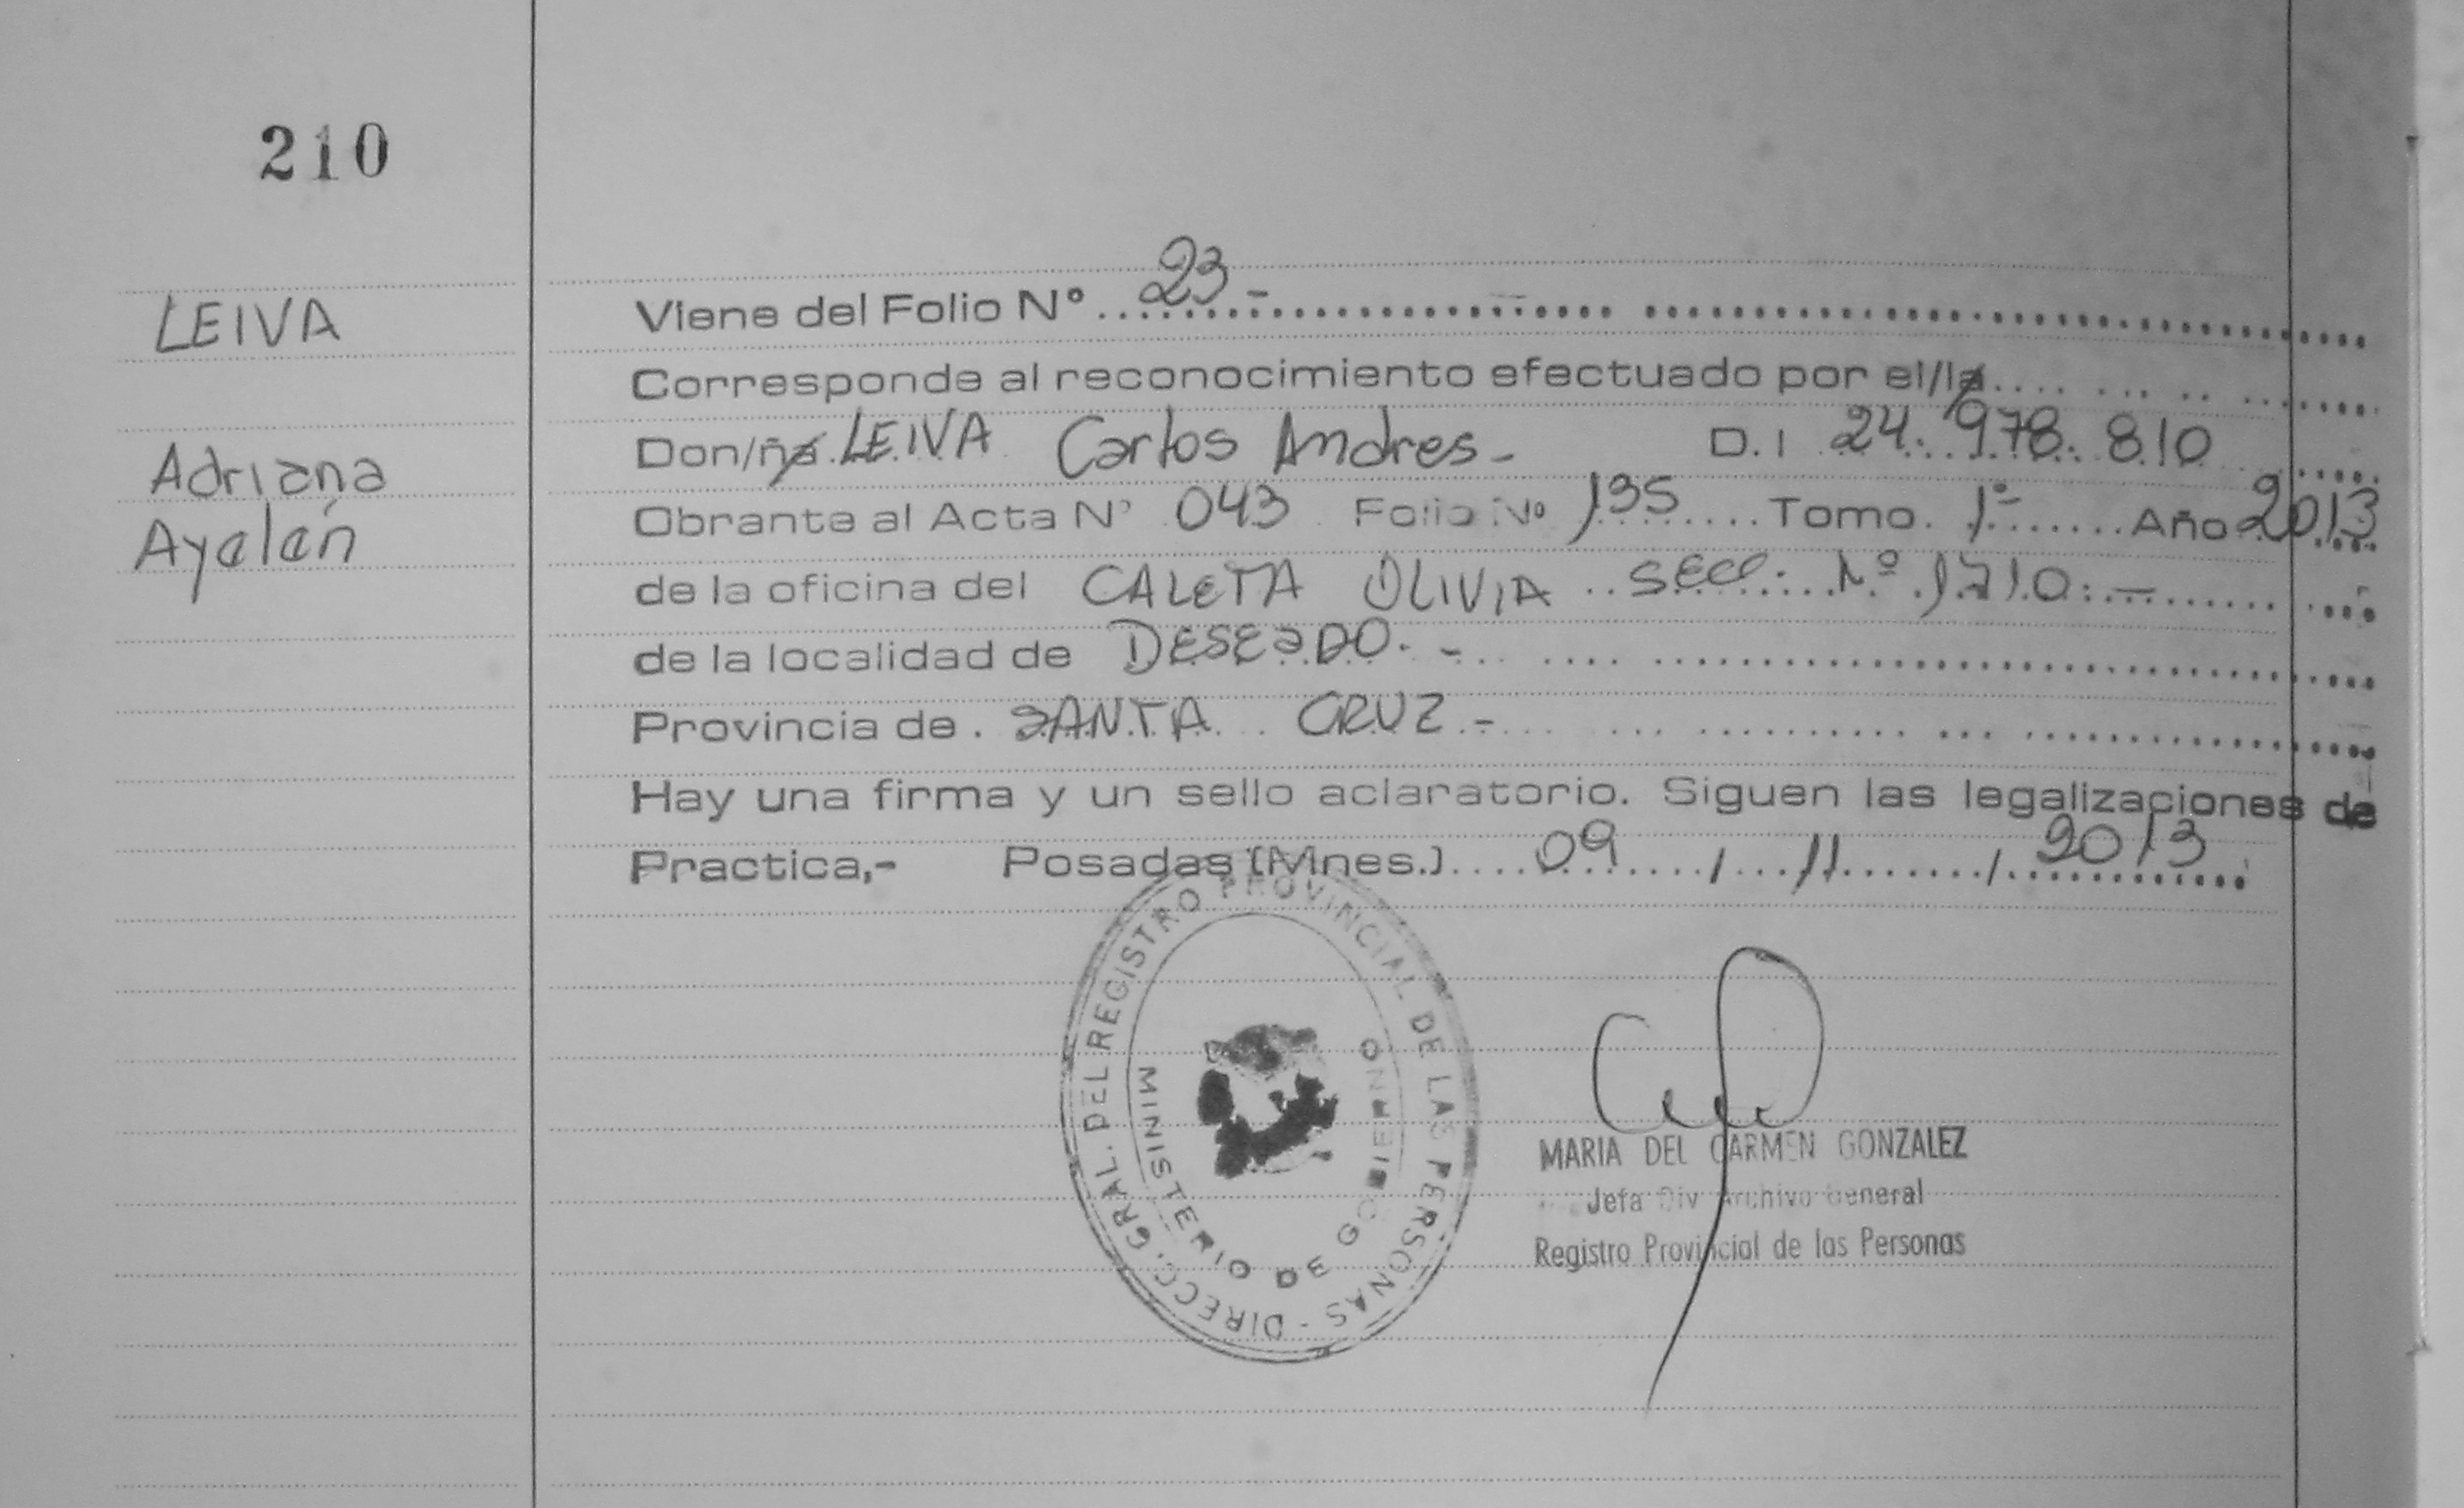 210
LEIVA
Adriana
Ayelén
Viene del Folio N° 23-
Corresponde al reconocimiento efectuado por el/la
Don/ña LEIVA Carlos Andres- D.I 24.978.810
Obrante al Acta N° 043 Folio Nº 135 Tomo 1º- Año 2013
de la oficina del CALETA OLIVIA Secc. Nº 1710.-
de la localidad de DESEADO.-
Provincia de SANTA CRUZ.-
Hay una firma y un sello aclaratorio. Siguen las legalizaciones de
Practica,- Posadas (Mnes.) 09 / 11 / 2013
DIRECC. GRAL. DEL REGISTRO PROVINCIAL DE LAS PERSONAS -
MINISTERIO DE GOBIERNO
MARIA DEL CARMEN GONZALEZ
Jefa Div Archivo General
Registro Provincial de las Personas